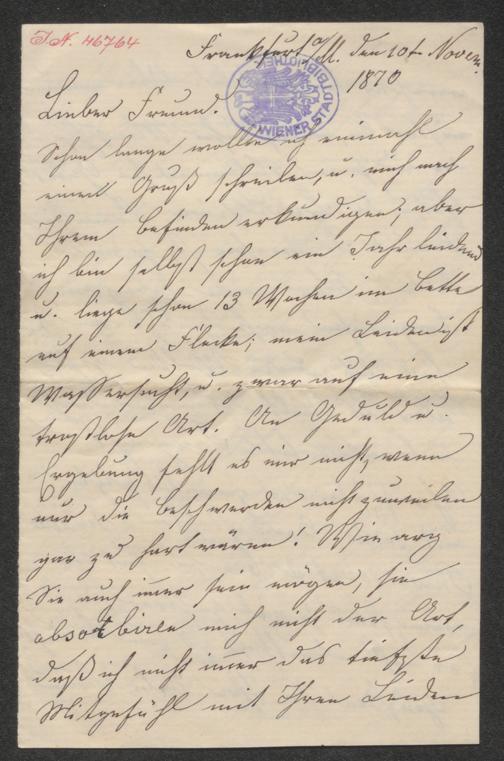 I.N. 46764
Frankfurt a/M. den 10t. Novem.
1870
WIENER STADTBIBLIOTHEK
Lieber Freund!
Schon lange wollte ich einmahl
einen Gruß schreiben, u. mich nach
Ihrem Befinden erkundigen; aber
ich bin selbst schon ein Jahr leidend
u. liege schon 13 Wochen im Bette
auf einem Flecke; mein Leiden ist
Wassersucht, u. zwar auf eine
trostlose Art. An Geduld u.
Ergebung fehlt es mir nicht, wenn
nur die Beschwerden nicht zuweilen
gar zu hart wären! Wie arg
Sie auch imer sein mögen, sie
absorbiren mich nicht der Art,
daß ich nicht imer das tiefste
Mitgefühl mit Ihren Leiden